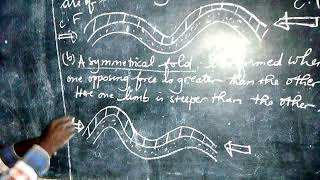 C.F
(b) A symmetrical fold. is formed when
one opposing force is greater than the other
one limb is steeper than the other.